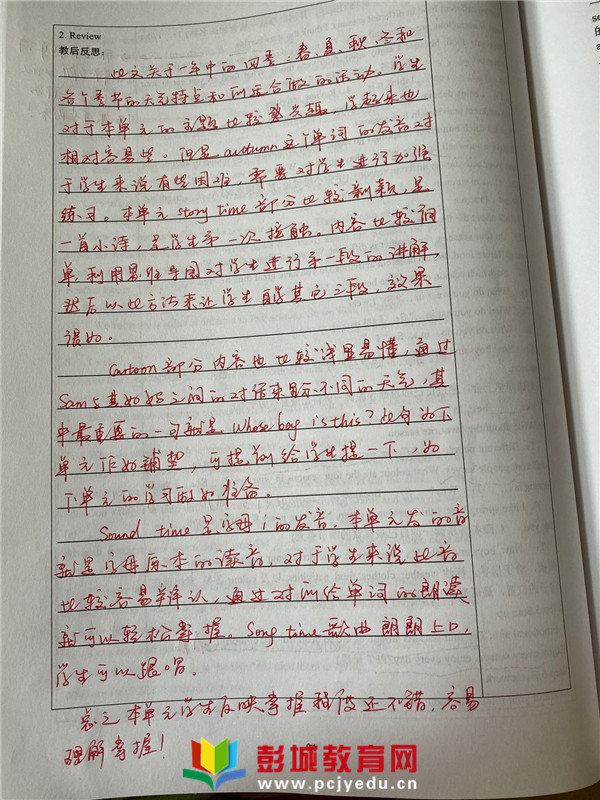 2. Review
教后反思：
此文关于一年中的四季：春、夏、秋、冬和
各个季节的天气特点和所适合做的活动。学生
对于本单元的主题比较感兴趣，学起来也
相对容易些。但是autumn这个单词的发音对
于学生来说有些困难，需要对学生进行加强
练习。本单元story time部分比较新颖，是
一首小诗，是学生第一次接触。内容比较简
单，利用思维导图对学生进行第一段的讲解，
然后以此方法来让学生自学其它三段，效果
很好。
Cartoon部分内容也比较浅显易懂，通过
Sam与其妈妈之间的对话来显示不同的天气，其
中最重要的一句就是Whose bag is this？此句为下
单元作好铺垫，可提前给学生提一下，为
下单元的学习做好准备。
Sound time是字母i的发音。本单元发的音
就是字母原本的读音，对于学生来说此音
比较容易辨认，通过对所给单词的朗读
就可以轻松掌握。Song time歌曲朗朗上口，
学生可以跟唱。
总之本单元学生反映掌握程度还不错，容易
理解掌握！
彭城教育网
www.pcjyedu.cn